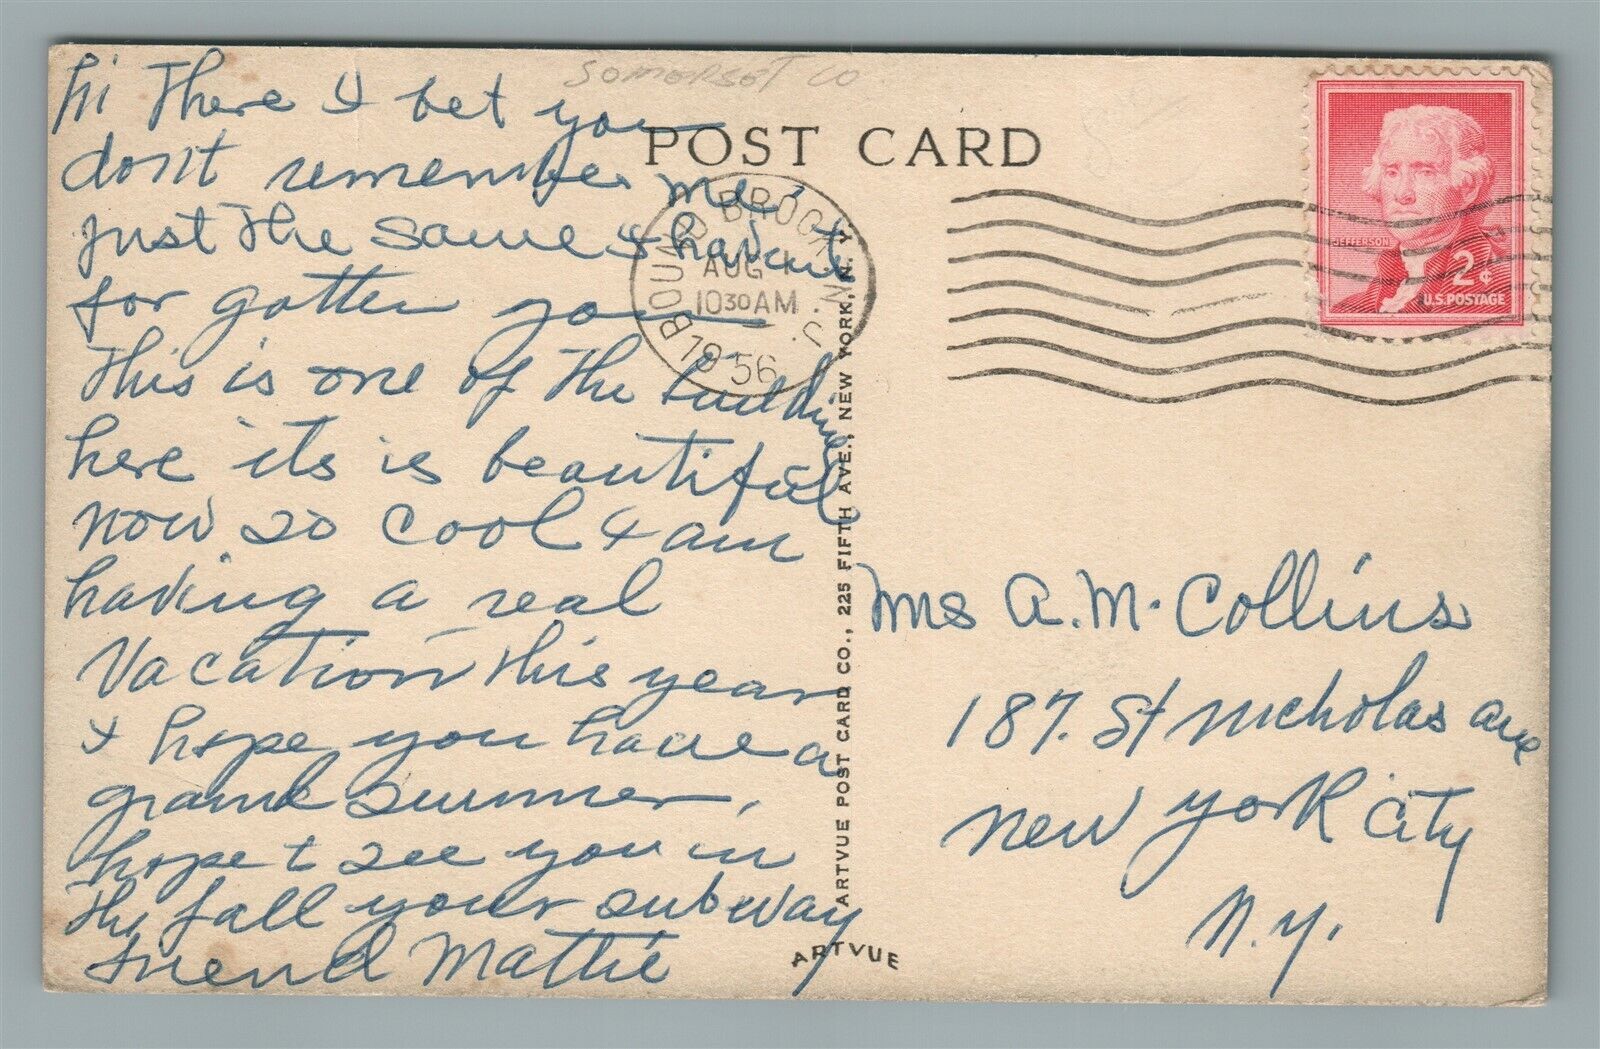 SOMERSET CO
POST CARD
hi There I bet you
don't remember me
just The same I havent
for gotten you
This is one of The building
here its is beautiful
now so cool & am
having a real
Vacation This year
I hope you have a
grand summer,
hope t see you in
The fall your subway
friend Mattie
BOUND BROOK, N. J.
AUG
1030AM
1956
JEFFERSON
2¢
U.S. POSTAGE
ARTVUE POST CARD CO., 225 FIFTH AVE., NEW YORK, N. Y.
ARTVUE
Mrs A. M. Collins
187. St Nicholas Ave
New York City
N.Y.